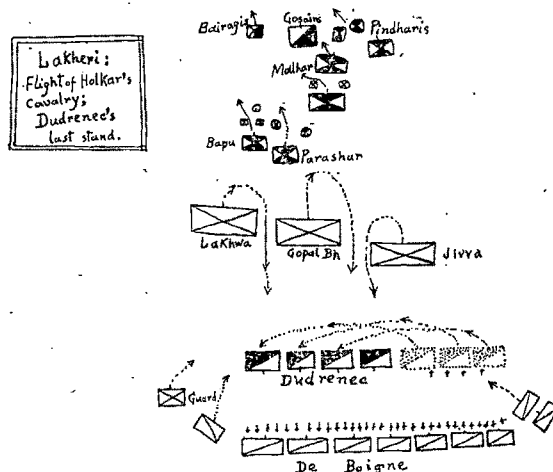 Lakheri:
Flight of Holkar's
Cavalry;
Dudrenec's
last stand.
Bairagis
Gosains
Pindharis
Malhar
Bapu
Parashar
Lakhwa
Gopal Bh
Jivva
Dudrenec
Guard
De Boigne